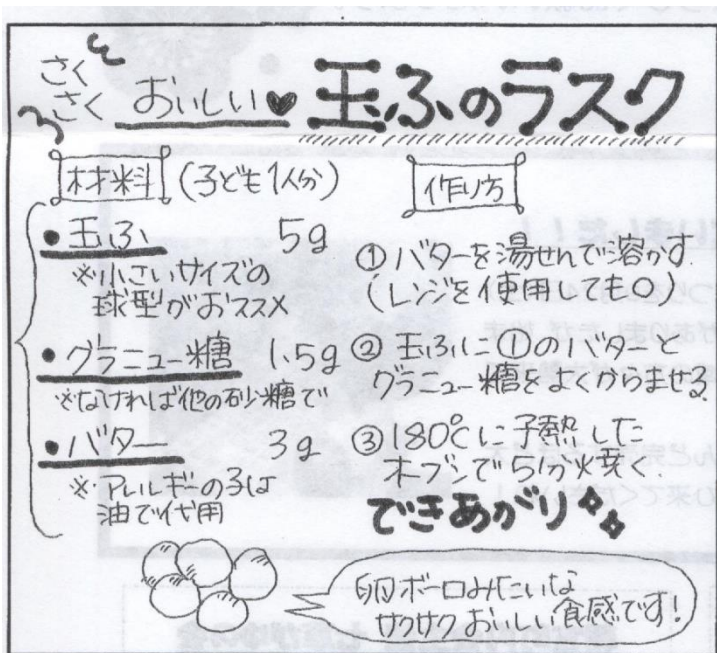 さく
さく おいしい♥ 玉ふのラスク
材料 (子ども1人分)
● 玉ふ 5g
※小さいサイズの
球型がおススメ
● グラニュー糖 1.5g
※なければ他の砂糖で
● バター 3g
※アレルギーの子は
油で代用
作り方
① バターを湯せんで溶かす
(レンジを使用しても○)
② 玉ふに①のバターと
グラニュー糖をよくからませる
③ 180℃に予熱した
オーブンで5分焼く
できあがり
卵ボーロみたいな
サクサクおいしい食感です!